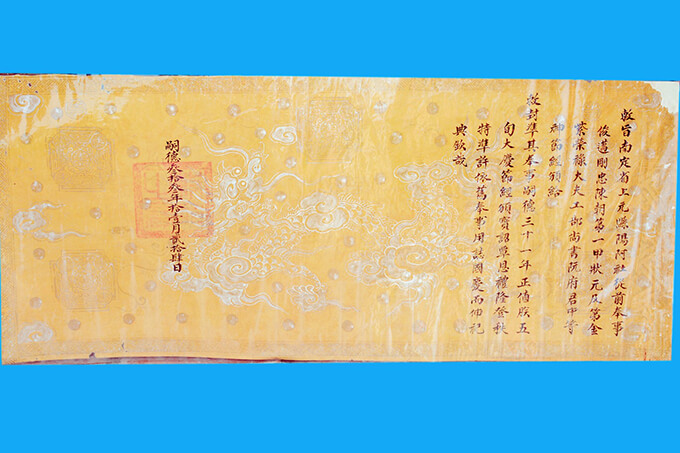 敕旨南定省上元縣陽阿社從前奉事
俊邁剛忠陳朝第一甲狀元及第金
紫榮祿大夫工部尚書阮府君中等
神節經頒給
敕封準其奉事嗣德三十一年正值朕五
旬大慶節經頒寶詔覃恩禮隆登秩
特準許依舊奉事用誌國慶而伸祀
典欽哉
嗣德叁拾叁年拾壹月貳拾肆日